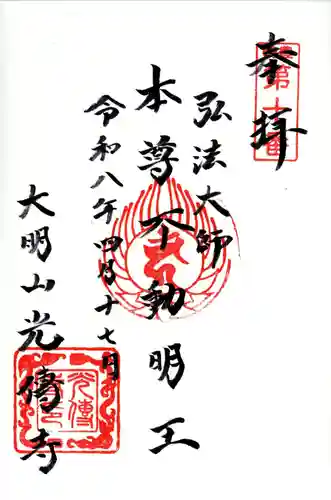 奉拝
弘法大師
本尊不動明王
令和八年四月十七日
大明山光傳寺